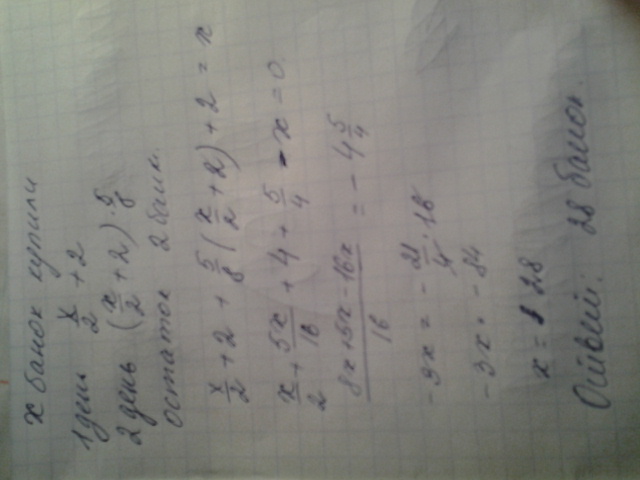 x банок купили
1 день x/2 + 2
2 день (x/2 + 2) · 5/8
остаток 2 банк.
x/2 + 2 + 5/8 (x/2 + 2) + 2 = x
x/2 + 5x/16 + 4 + 5/4 - x = 0
8x+5x-16x/16 = - 4 5/4
- 3x = - 21/4 · 16
- 3x = - 84
x = 28
Ответ: 28 банок.